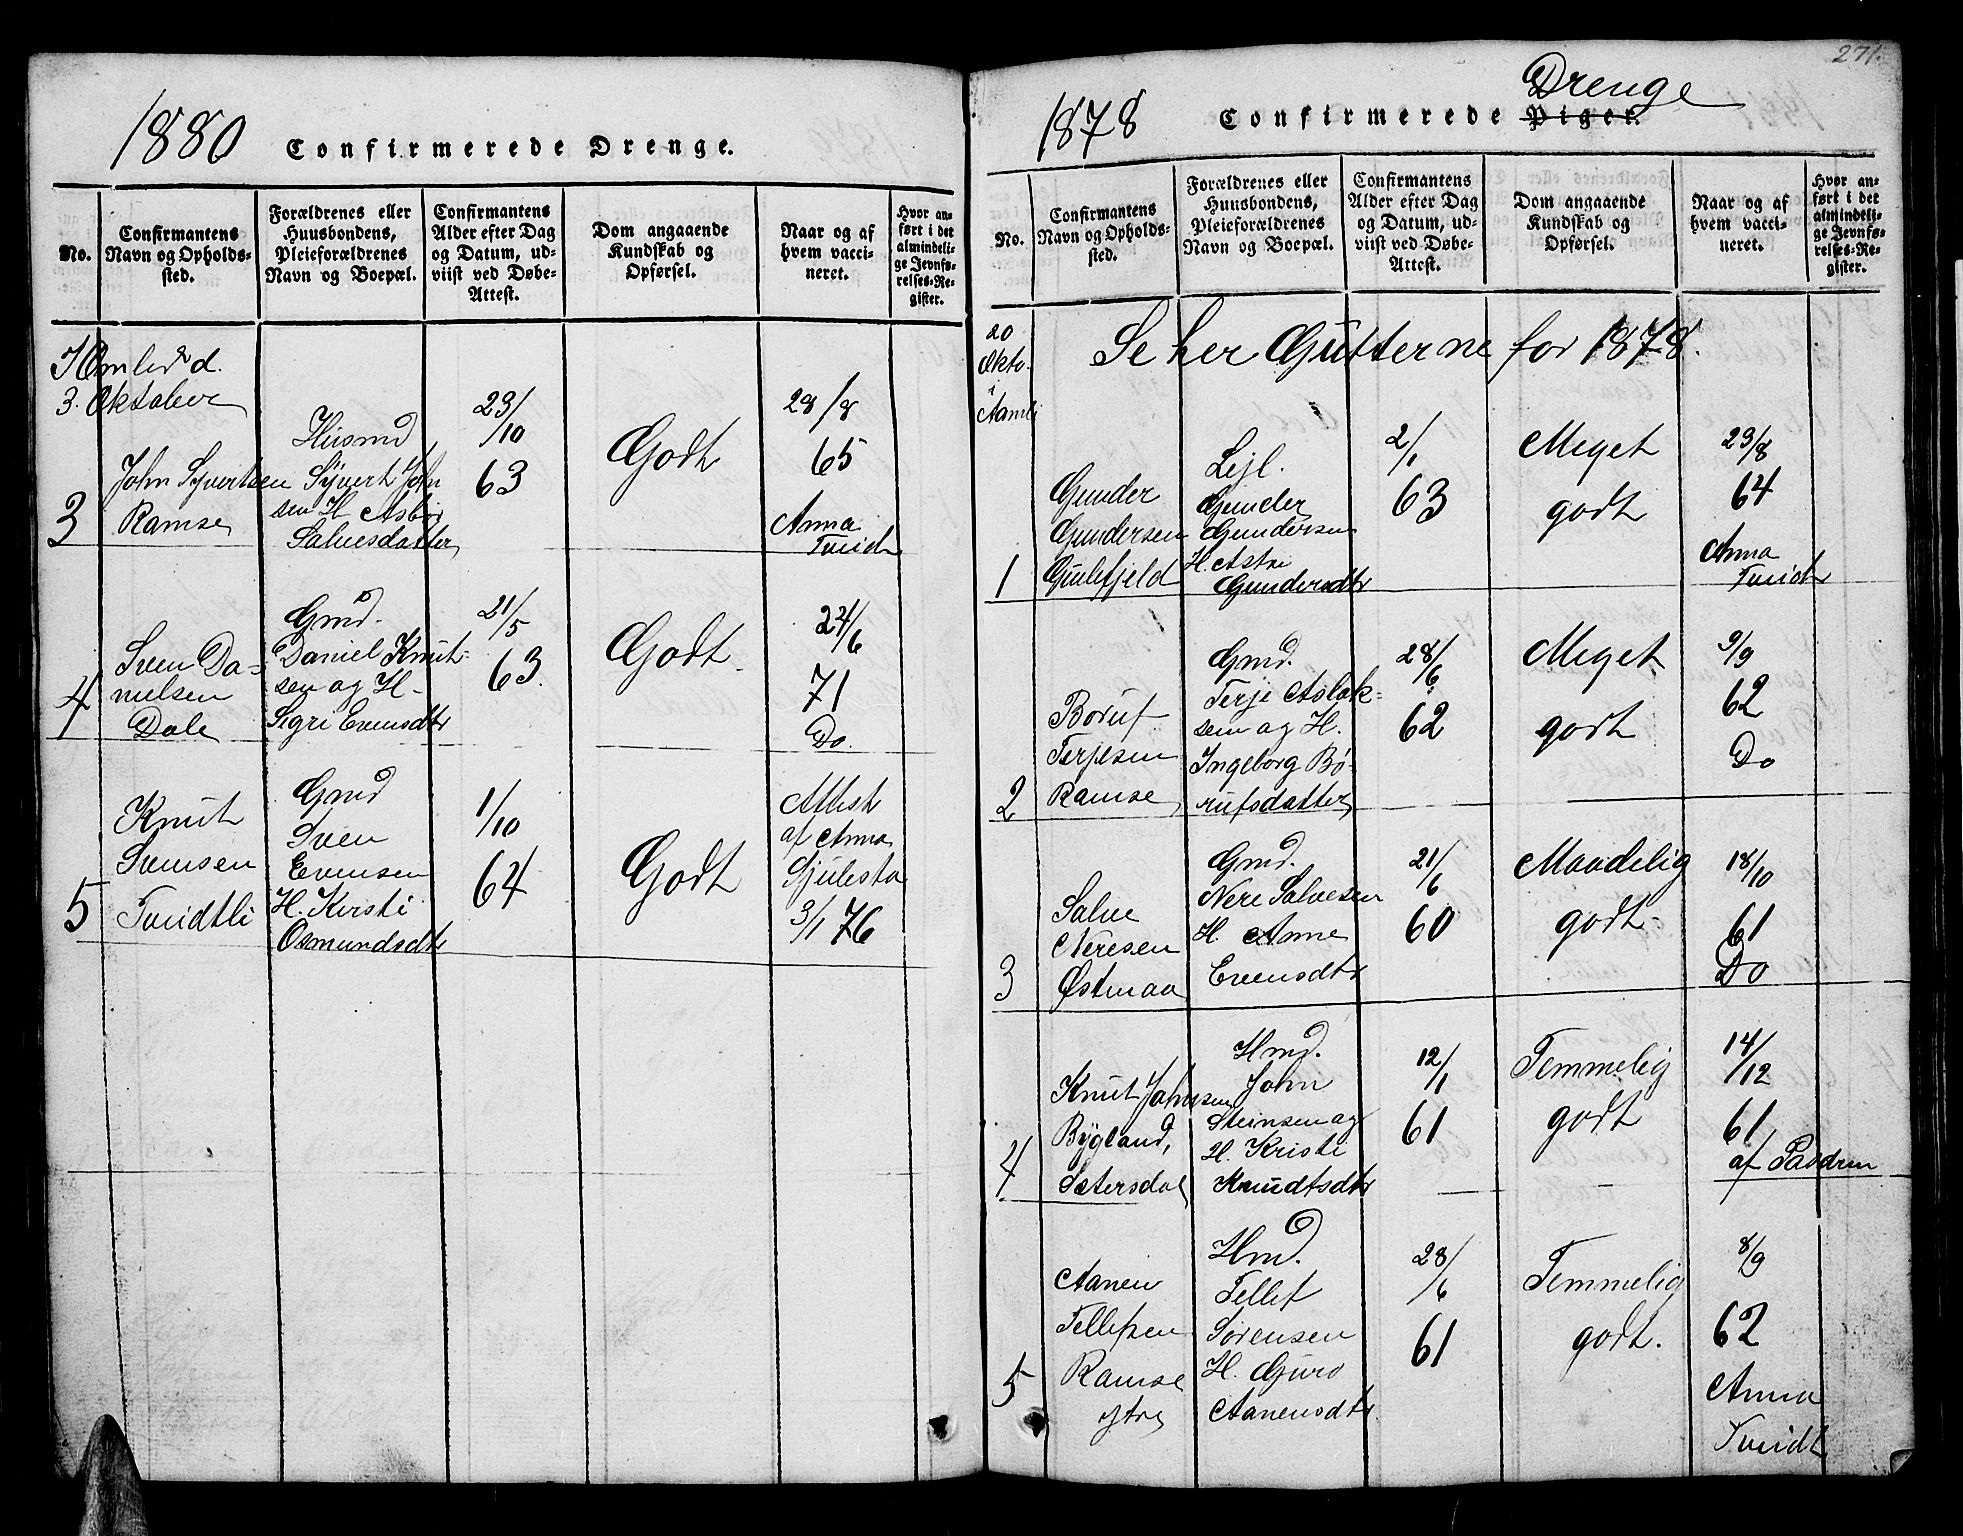 1880 Confirmerede Drenge.
No.
Confirmantens
Navn og Opholds-
sted.
Forældrenes eller
Huusbondens,
Pleieforældrenes
Navn og Boepæl.
Confirmantens
Alder efter Dag
og Datum, ud-
viist ved Døbe-
Attest.
Dom angaaende
Kundskab og
Opførsel.
Naar og af
hvem vacci-
neret.
Hvor an-
ført i det
almindeli-
ge Jevnfø-
relses-Re-
gister.
3. Oktober
3
John Syvertsen
Ramse
Husmd
Syvert John
sen H Asbør
Salvesdatter
23/10
63
Godt
28/8
65
Anna
Tveidt
4
Sven Da-
nielsen
Dale
Gmd.
Daniel Knut-
sen og H-
Sigri Evensdtr
21/5
63.
Godt.
24/6
71
Do.
5
Knut
Svensen
Tveidtli
Gmd
Sven
Evensen
H. Kirsti
Osmundsdtr
1/10
64
Godt
Attest
af Anna
Sjulesta
3/1 76
271.
1878 Confirmerede Piger. Drenge
No.
Confirmantens
Navn og Opholds-
sted.
Forældrenes eller
Huusbondens,
Pleieforældrenes
Navn og Boepæl.
Confirmantens
Alder efter Dag
og Datum, ud-
viist ved Døbe-
Attest.
Dom angaaende
Kundskab og
Opførsel.
Naar og af
hvem vacci-
neret.
Hvor an-
ført i det
almindeli-
ge Jevnfø-
relses-Re-
gister.
20
Okto.
i
Aamli
Se her Gutterne for 1878.
1
Gunder
Gundersen
Gulefjeld
Lejl.
Gunder
Gundersen
H. Astri
Gundersdtr
2/1
63
Meget
godt
23/8
64
Anna
Tveidt
2
Boruf
Terjesen
Ramse
Gmd.
Terje Aslak-
sen og H.
Ingeborg Bo-
rufsdatter
28/6
62
Meget
godt
9/9
62
Do
3
Salve
Neresen
Østmaa
Gmd.
Nere Salvesen
H. Anne
Evensdtr
21/6
60
Maadelig
godt-
18/10
61
Do
4
Knut Johnsen
Bygland,
Sætersdal
Hmd.
John
Steinsen og
H. Kristi
Knudtsdtr
12/1
61
Temmelig
godt
14/12
61
af Paadren
5
Aanen
Tellefsen
Ramse
ytre
Hmd.
Tellef
Sørensen
H. Guro
Aanensdtr.
28/6
61
Temmelig
godt.
8/9
62
Anna
Tveidt